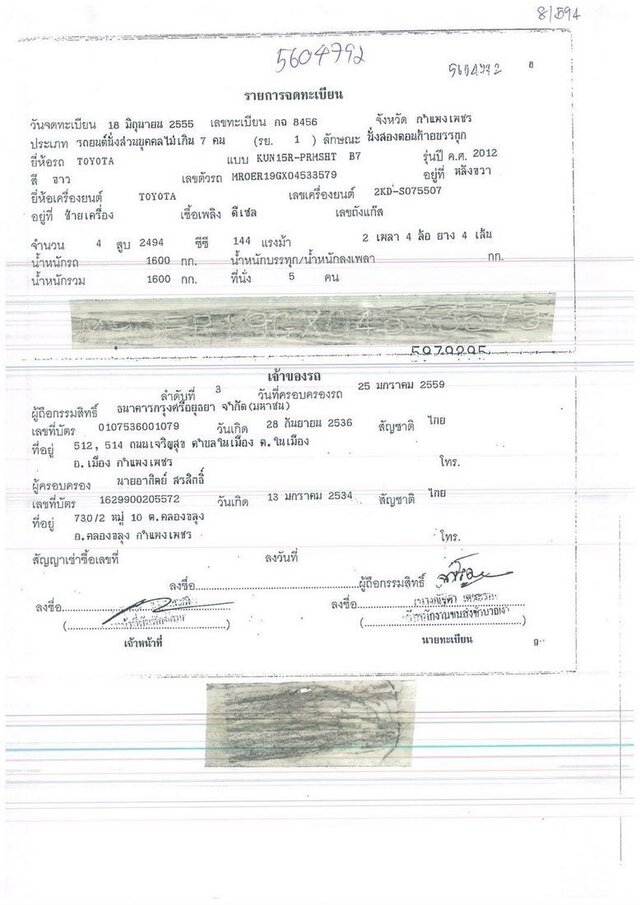 8/594
5604792
5604792
รายการจดทะเบียน
วันจดทะเบียน 18 มิถุนายน 2555 เลขทะเบียน กฉ 8456 จังหวัด กำแพงเพชร
ประเภท รถยนต์นั่งส่วนบุคคลไม่เกิน 7 คน (รย. 1 ) ลักษณะ นั่งสองตอนท้ายบรรทุก
ยี่ห้อรถ TOYOTA แบบ KUN15R-PRMSHT B7 รุ่นปี ค.ศ. 2012
สี ขาว เลขตัวรถ MROER19GX04533579 อยู่ที่ หลังขวา
ยี่ห้อเครื่องยนต์ TOYOTA เลขเครื่องยนต์ 2KD-S075507
อยู่ที่ ซ้ายเครื่อง เชื้อเพลิง ดีเซล เลขถังแก๊ส
จำนวน 4 สูบ 2494 ซีซี 144 แรงม้า 2 เพลา 4 ล้อ ยาง 4 เส้น
น้ำหนักรถ 1600 กก. น้ำหนักบรรทุก/น้ำหนักลงเพลา กก.
น้ำหนักรวม 1600 กก. ที่นั่ง 5 คน
เจ้าของรถ
ลำดับที่ 3 วันที่ครอบครองรถ 25 มกราคม 2559
ผู้ถือกรรมสิทธิ์ ธนาคารกรุงศรีอยุธยา จำกัด(มหาชน)
เลขที่บัตร 0107536001079 วันเกิด 28 กันยายน 2536 สัญชาติ ไทย
ที่อยู่ 512, 514 ถนนเจริญสุข ตำบลในเมือง ต.ในเมือง
อ.เมือง กำแพงเพชร โทร.
ผู้ครอบครอง นายอาทิตย์ สรสิทธิ์
เลขที่บัตร 1629900205572 วันเกิด 13 มกราคม 2534 สัญชาติ ไทย
ที่อยู่ 730/2 หมู่ 10 ต.คลองขลุง
อ.คลองขลุง กำแพงเพชร โทร.
สัญญาเช่าซื้อเลขที่ ลงวันที่
ลงชื่อ ผู้ถือกรรมสิทธิ์
ลงชื่อ ลงชื่อ
เจ้าหน้าที่ นายทะเบียน